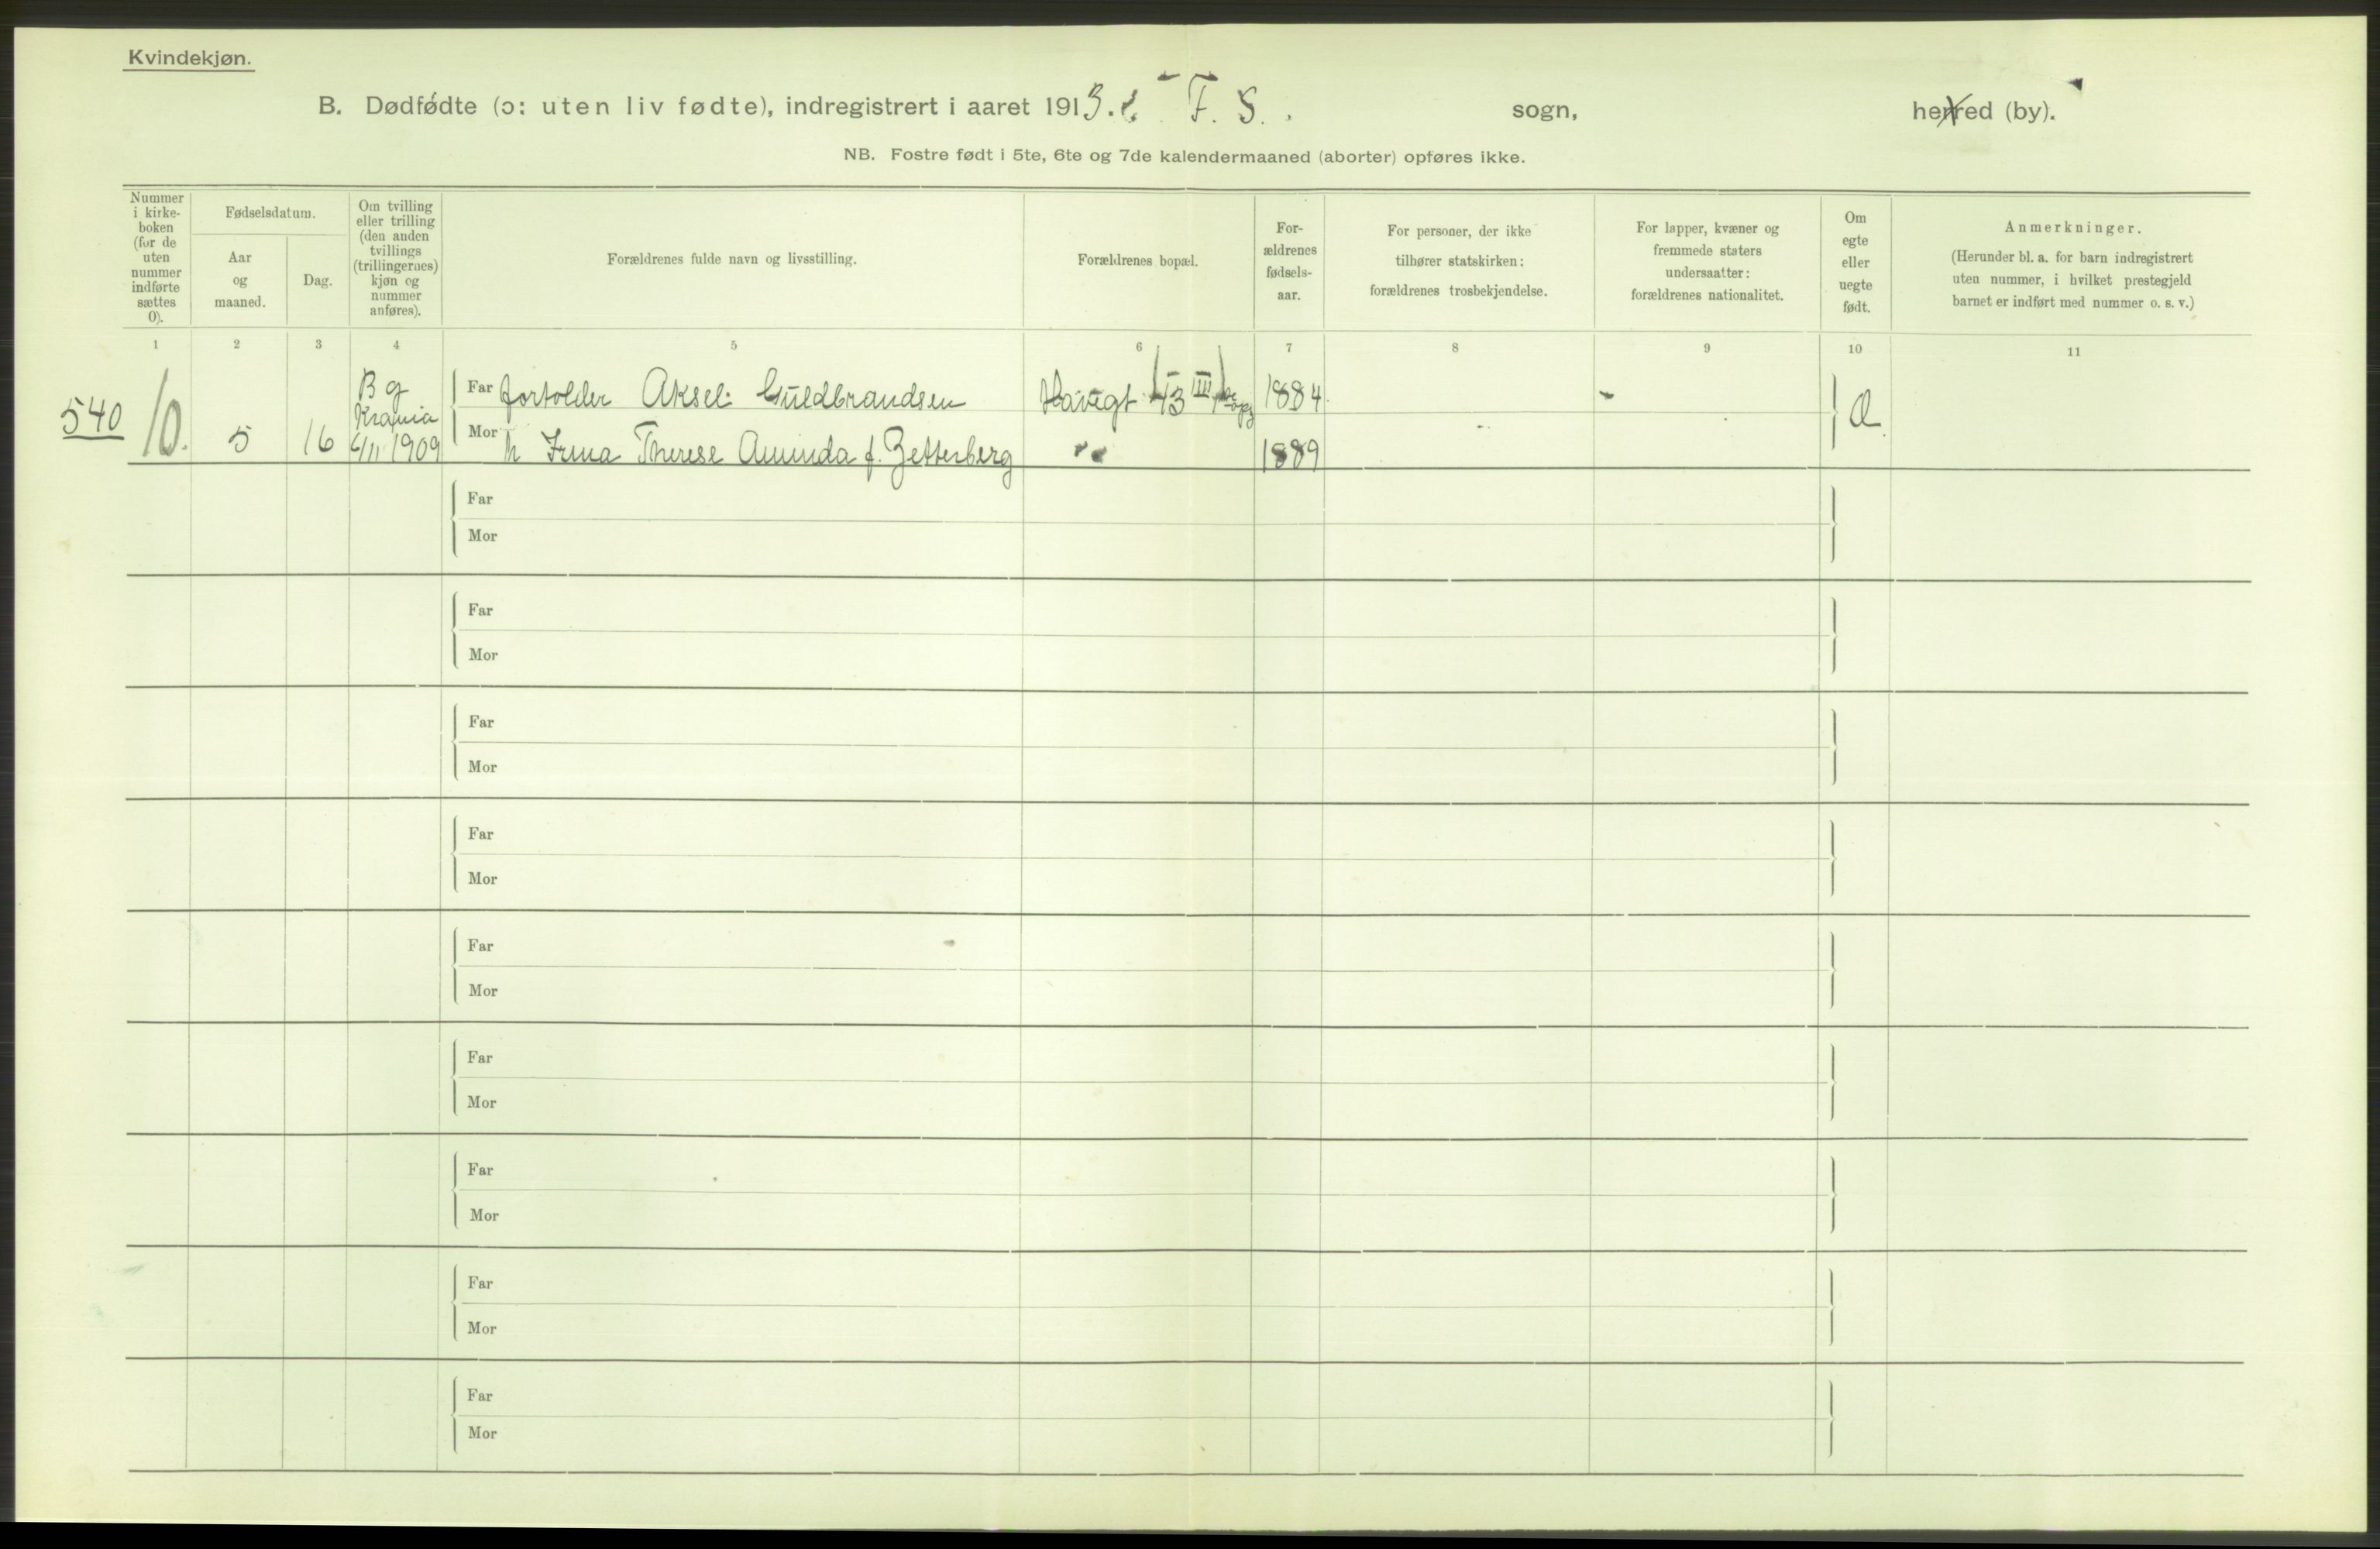 Kvindekjøn.
B. Dødfødte (ɔ: uten liv fødte), indregistrert i aaret 1913. F. S. sogn, herred (by).
NB. Fostre født i 5te, 6te og 7de kalendermaaned (aborter) opføres ikke.
Nummer
i kirke-
boken
(for de
uten
nummer
indførte
sættes
0).
Fødselsdatum.
Aar
og
maaned.
Dag.
Om tvilling
eller trilling
(den anden
tvillings
(trillingernes)
kjøn og
nummer
anføres).
Forældrenes fulde navn og livsstilling.
Forældrenes bopæl.
For-
ældrenes
fødsels-
aar.
For personer, der ikke
tilhører statskirken:
forældrenes trosbekjendelse.
For lapper, kvæner og
fremmede staters
undersaatter:
forældrenes nationalitet.
Om
egte
eller
uegte
født.
Anmerkninger.
(Herunder bl. a. for barn indregistrert
uten nummer, i hvilket prestegjeld
barnet er indført med nummer o. s. v.)
1 2 3 4 5 6 7 8 9 10 11
540 10. 5 16
B g
Krania
6/11 1909
Far Aksel Guldbrandsen 43 III 1884
Mor Therese f. Zetterberg 1889
Far
Mor
Far
Mor
Far
Mor
Far
Mor
Far
Mor
Far
Mor
Far
Mor
Far
Mor
Far
Mor